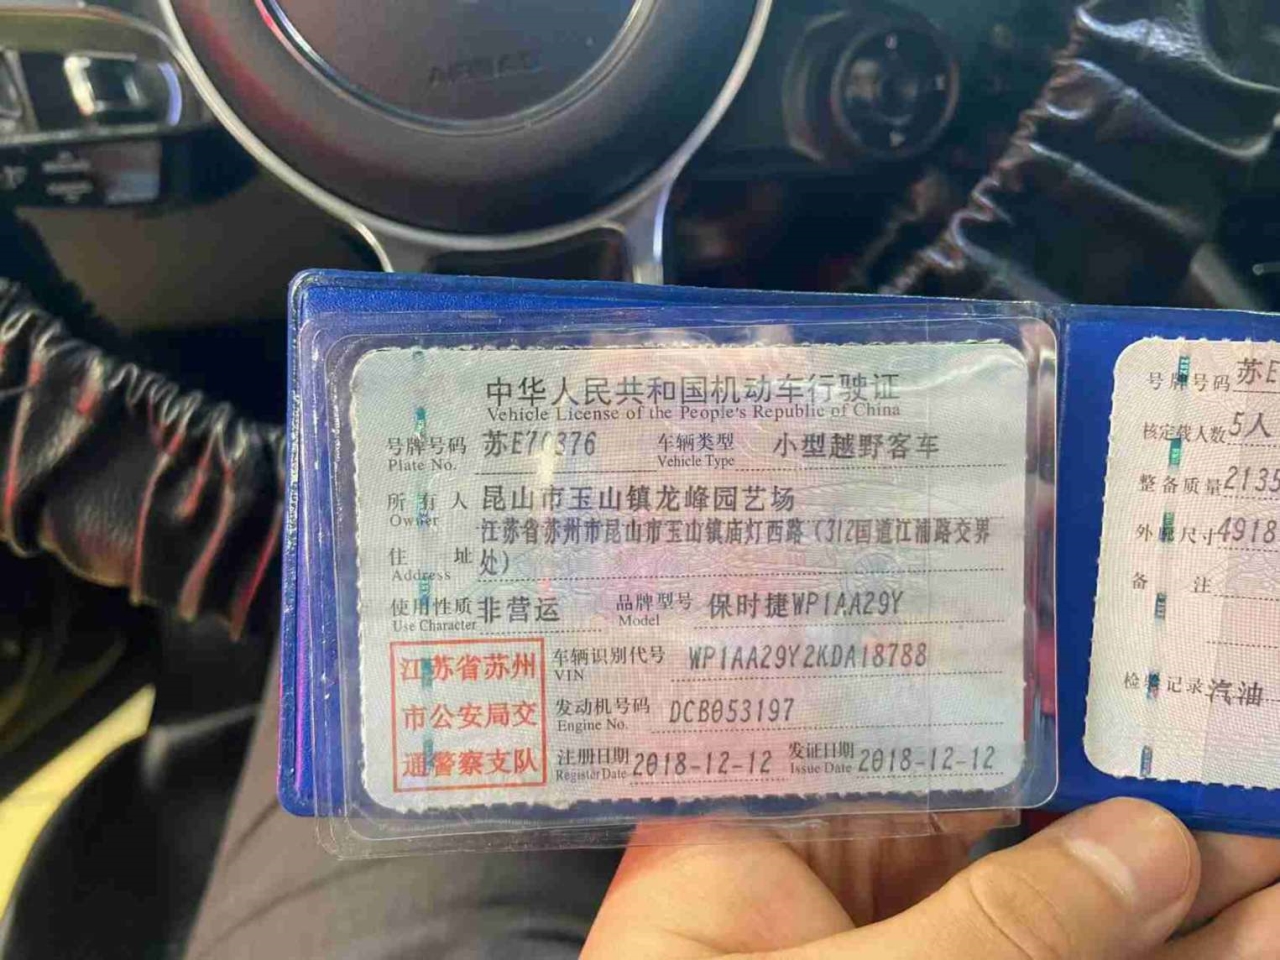 中华人民共和国机动车行驶证
Vehicle License of the People's Republic of China
号牌号码 苏E70376 车辆类型 小型越野客车
Plate No. Vehicle Type
所有人 昆山市玉山镇龙峰园艺场
Owner
江苏省苏州市昆山市玉山镇庙灯西路(312国道江浦路交界
住址 处)
Address
使用性质 非营运 品牌型号 保时捷WP1AA29Y
Use Character Model
江苏省苏州
市公安局交
通警察支队
车辆识别代号 WP1AA29Y2KDA18788
VIN
发动机号码 DCB053197
Engine No.
注册日期 2018-12-12 发证日期 2018-12-12
Register Date Issue Date
号牌号码 苏E
核定载人数 5人
整备质量 2135
外廓尺寸 4918
备注
检验记录 汽油